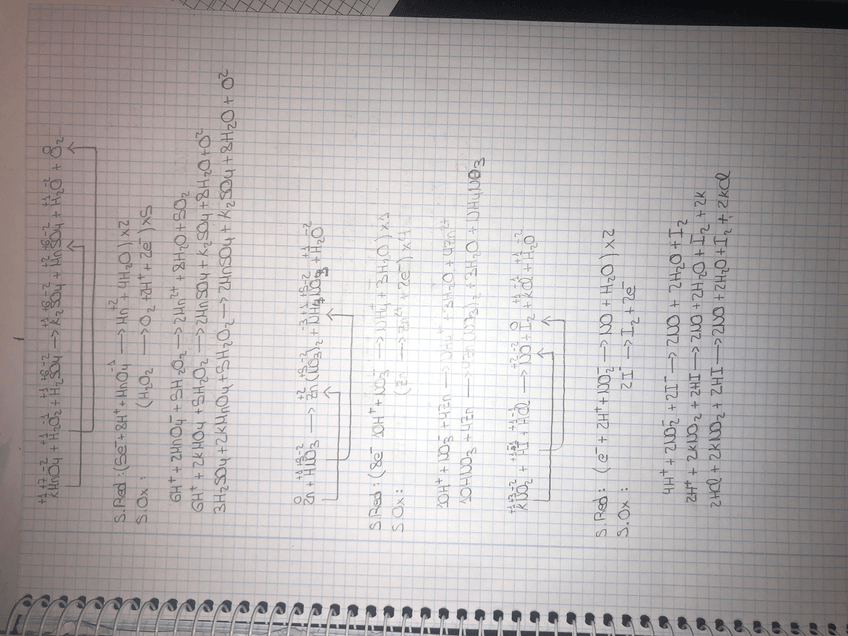 +1+7-2 +1-1 +1+6-2 +1+6-2 +2+6-2 +1-2 0
KMnO4 + H2O2 + H2SO4 → K2SO4 + MnSO4 + H2O + O2
S.Red: (5e- + 8H+ + MnO4-1 → Mn+2 + 4H2O) x2
S.Ox: (H2O2 → O2 + 2H+ + 2e-) x5
6H+ + 2MnO4- + 5H2O2 → 2Mn2+ + 8H2O + 5O2
6H+ + 2KMO4 + 5H2O2 → 2MnSO4 + K2SO4 + 8H2O + O2
3H2SO4 + 2KMnO4 + 5H2O2 → 2MnSO4 + K2SO4 + 8H2O + O2
0 +1+5-2 +2+5-2 -3+1+5-2 +1-2
Zn + HNO3 → Zn(NO3)2 + NH4NO3 + H2O
S.Red: (8e- 10H+ + NO3- → NH4+ + 3H2O) x1
S.Ox: (Zn → Zn2+ + 2e-) x4
10H+ + NO3- + 4Zn → NH4+ + 3H2O + 4Zn2+
10HNO3 + 4Zn → 4Zn(NO3)2 + 3H2O + NH4NO3
+1+3-2 +1-1 +1-1 +2-2 0 +1-1 +1-2
KNO2 + HI + HCl → NO + I2 + KCl + H2O
S.Red: (e- + 2H+ + NO2- → NO + H2O) x2
S.Ox: 2I- → I2 + 2e-
4H+ + 2NO2- + 2I- → 2NO + 2H2O + I2
2H+ + 2KNO2 + 2HI → 2NO + 2H2O + I2 + 2K
2HCl + 2KNO2 + 2HI → 2NO + 2H2O + I2 + 2KCl